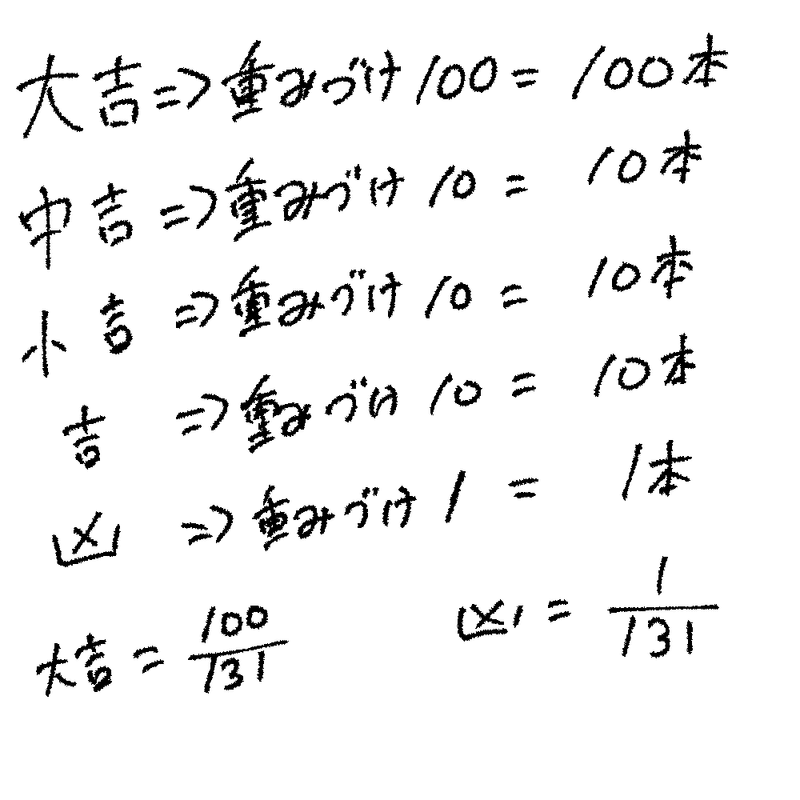 大吉⇒重みづけ100=100本
中吉⇒重みづけ10=10本
小吉⇒重みづけ10=10本
吉⇒重みづけ10=10本
凶⇒重みづけ1=1本
大吉=100/131 凶=1/131